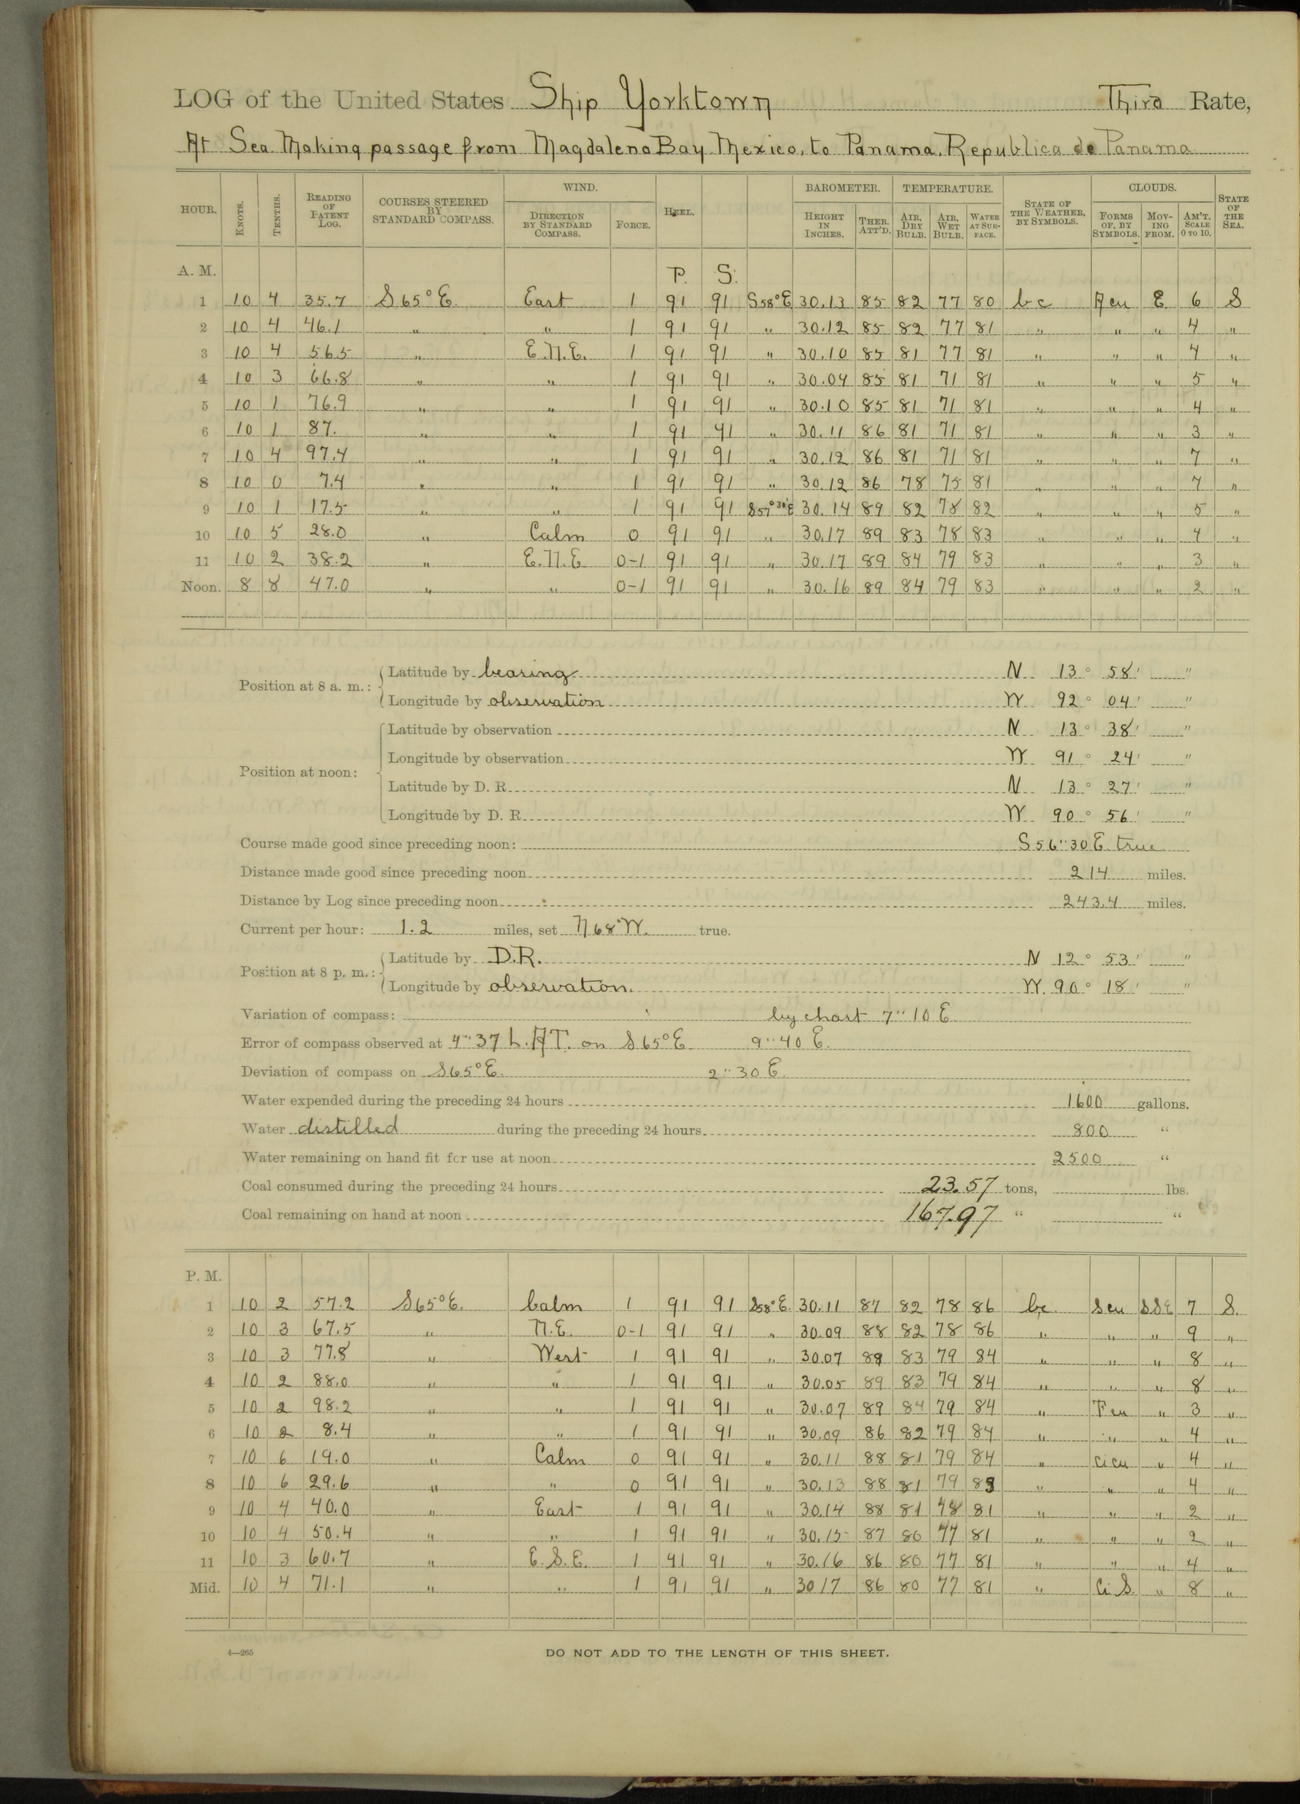 LOG of the United States Ship Yorktown Third Rate,
At Sea Making passage from Magdalena Bay Mexico, to Panama, Republica de Panama
HOUR. KNOTS. TENTHS. READING OF PATENT LOG. COURSES STEERED BY STANDARD COMPASS. WIND. DIRECTION BY STANDARD COMPASS. FORCE. HEEL. BAROMETER. HEIGHT IN INCHES. THER. ATT'D. TEMPERATURE. AIR, DRY BULB. AIR, WET BULB. WATER AT SURFACE. STATE OF THE WEATHER, BY SYMBOLS. CLOUDS. FORMS OF, BY SYMBOLS. MOVING FROM. AM'T. SCALE 0 TO 10. STATE OF THE SEA.
A. M. P. S.
1 10 4 35.7 S 65° E. East 1 91 91 S58°E 30.13 85 82 77 80 bc A cu E. 6 S
2 10 4 46.1 " " 1 91 91 " 30.12 85 82 77 81 " " " 4 "
3 10 4 56.5 " E.N.E. 1 91 91 " 30.10 85 81 77 81 " " " 4 "
4 10 3 66.8 " " 1 91 91 " 30.04 85 81 71 81 " " " 5 "
5 10 1 76.9 " " 1 91 91 " 30.10 85 81 71 81 " " " 4 "
6 10 1 87. " " 1 91 91 " 30.11 86 81 71 81 " " " 3 "
7 10 4 97.4 " " 1 91 91 " 30.12 86 81 71 81 " " " 7 "
8 10 0 7.4 " " 1 91 91 " 30.12 86 78 75 81 " " " 7 "
9 10 1 17.5 " " 1 91 91 S57°30'E 30.14 89 82 78 82 " " " 5 "
10 10 5 28.0 " Calm 0 91 91 " 30.17 89 83 78 83 " " " 4 "
11 10 2 38.2 " E.N.E 0-1 91 91 " 30.17 89 84 79 83 " " " 3 "
Noon. 8 8 47.0 " " 0-1 91 91 " 30.16 89 84 79 83 " " " 2 "
Position at 8 a. m.: Latitude by bearing N 13° 58' "
Longitude by observation W 92° 04' "
Position at noon: Latitude by observation N 13° 38' "
Longitude by observation W 91° 24' "
Latitude by D. R. N 13° 27' "
Longitude by D. R. W 90° 56' "
Course made good since preceding noon: S 56°30 E true
Distance made good since preceding noon 214 miles.
Distance by Log since preceding noon 243.4 miles.
Current per hour: 1.2 miles, set N 68°W. true.
Position at 8 p. m.: Latitude by D.R. N 12° 53' "
Longitude by observation. W. 90° 18' "
Variation of compass: by chart 7° 10 E
Error of compass observed at 4° 37 L.A.T. on S 65° E 9° 40 E.
Deviation of compass on S65°E. 2° 30 E.
Water expended during the preceding 24 hours 1600 gallons.
Water distilled during the preceding 24 hours 800 "
Water remaining on hand fit for use at noon 2500 "
Coal consumed during the preceding 24 hours 23.57 tons, lbs.
Coal remaining on hand at noon 167.97 " "
P. M.
1 10 2 57.2 S65°E. Calm 1 91 91 S58°E. 30.11 87 82 78 86 bc. S cu S.S.E 7 S.
2 10 3 67.5 " N.E. 0-1 91 91 " 30.09 88 82 78 86 " " " 9 "
3 10 3 77.8 " West 1 91 91 " 30.07 89 83 79 84 " " " 8 "
4 10 2 88.0 " " 1 91 91 " 30.05 89 83 79 84 " " " 8 "
5 10 2 98.2 " " 1 91 91 " 30.07 89 84 79 84 " F cu " 3 "
6 10 2 8.4 " " 1 91 91 " 30.09 86 82 79 84 " " " 4 "
7 10 6 19.0 " Calm 0 91 91 " 30.11 88 81 79 84 " ci cu " 4 "
8 10 6 29.6 " " 0 91 91 " 30.13 88 81 79 83 " " " 4 "
9 10 4 40.0 " East 1 91 91 " 30.14 88 81 78 81 " " " 2 "
10 10 4 50.4 " " 1 91 91 " 30.15 87 80 77 81 " " " 2 "
11 10 3 60.7 " E. S. E. 1 91 91 " 30.16 86 80 77 81 " " " 4 "
Mid. 10 4 71.1 " " 1 91 91 " 30 17 86 80 77 81 " Ci S. " 8 "
4—265 DO NOT ADD TO THE LENGTH OF THIS SHEET.